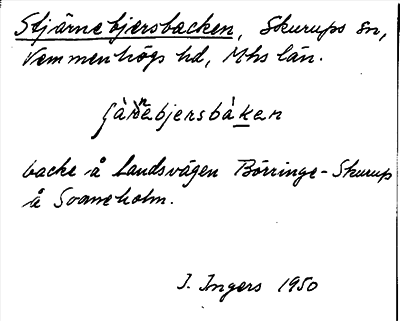 Stjärnebjersbacken, Skurups sn,
Vemmenhögs hd, Mhs län.
backe å landsvägen Börringe-Skurup
å Svaneholm.
I. Ingers 1950